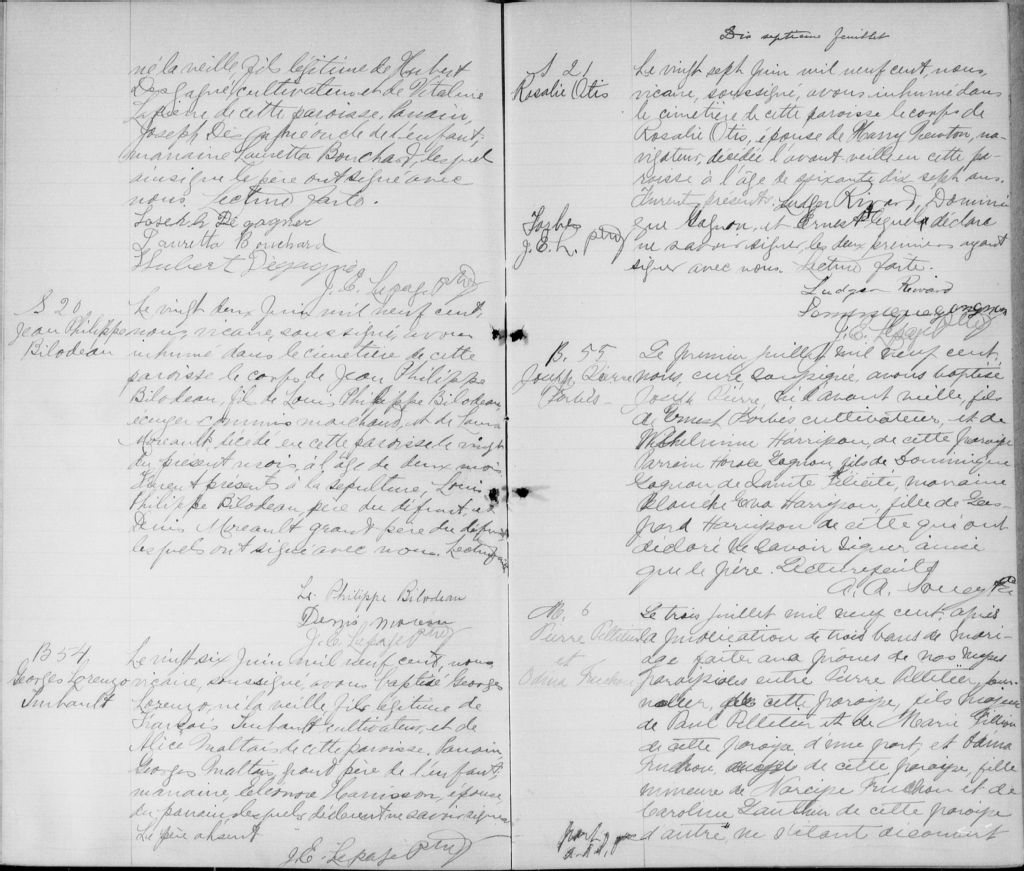 né la veille, fils légitime de Hubert
Desgagné, cultivateur, et de Vitaline
de cette paroisse. Parrain,
Joseph Desgagné oncle de l'enfant;
marraine, Lauretta Bouchard, lesquels
ainsi que le père ont signé avec
nous. Lecture faite.
Joseph Dégagner
Lauretta Bouchard
Hubert Dégagné
J. E. Lepage ptre
S 20
Jean Philippe
Bilodeau
Le vingt deux Juin mil neuf cent,
nous, vicaire, soussigné, avons
inhumé dans le cimetière de cette
paroisse le corps de Jean Philippe
Bilodeau, fils de Louis Philippe Bilodeau,
écuyer commis marchand, et de
Moreault, décédé en cette paroisse le vingt
du présent mois, à l'âge de deux mois
Furent présents à la sépulture, Louis
Philippe Bilodeau, père du défunt, et
Denis Moreault grand père du défunt
lesquels ont signé avec nous. Lecture faite
Ls. Philippe Bilodeau
Denis Moreau
J. E. Lepage ptre
B 54
Georges Lorenzo
Imbault
Le vingt six Juin mil neuf cent, nous
vicaire, soussigné, avons baptisé Georges
Lorenzo, né la veille fils légitime de
François Imbault cultivateur, et de
Alice Maltais de cette paroisse. Parrain
Georges Maltais, grand père de l'enfant;
marraine, Eléonore Harrisson, épouse
du parrain, lesquels déclarent ne savoir signer
Le père absent
J. E. Lepage ptre
Dix septième feuillet
S 21
Rosalie Otis
Le vingt sept Juin mil neuf cent, nous,
vicaire, soussigné, avons inhumé dans
le cimetière de cette paroisse le corps de
Rosalie Otis, épouse de Harry Newton, na-
vigateur, décédée l'avant-veille en cette pa-
roisse à l'âge de soixante dix sept ans.
Furent présents: Ludger Rivard, Domini-
que Gagnon, et Ernest qui a déclaré
ne savoir signer, les deux premiers ayant
signé avec nous. Lecture faite.
Forbes
J. E. L. ptre
Ludger Rivard
J. E. Lepage ptre
B. 55
Joseph Pierre
Forbes
Le premier juillet mil neuf cent,
nous, curé soussigné, avons baptisé
Joseph Pierre, né l'avant veille, fils
de Ernest Forbes cultivateur, et de
Wilhelmine Harrisson, de cette paroisse
Parrain Horace Gagnon, fils de Dominique
Gagnon de Sainte Félicité, marraine
Blanche Eva Harrisson, fille de Gas-
pard Harrisson de celle qui ont
déclaré ne savoir signer ainsi
que le père. Lecture faite
A. A. Soucy Ptre
M. 6
Pierre Pelletier
et
Odina Fruchon
Le trois juillet mil neuf cent, après
la publication de trois bans de mari-
age faite aux prônes de nos messes
paroissiales entre Pierre Pelletier, jour-
nalier, de cette paroisse, fils majeur
de Paul Pelletier et de Marie
de cette paroisse, d'une part, et Odina
Fruchon, aussi de cette paroisse, fille
mineure de Narcisse Fruchon et de
Caroline Gauthier de cette paroisse
d'autre part, ne s'étant découvert